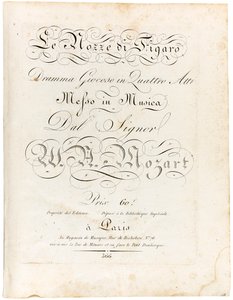 Le Nozze di Figaro
Dramma Giocoso in Quattro Atti
Messo in Musica
Dal Signor
Mozart
Prix 60.ᶠ
Propriété des Editeurs. Déposé à la Bibliothèque Impériale
à Paris
Au Magasin de Musique, Rue de Richelieu, N.º
vis-à-vis la Rue de Ménars